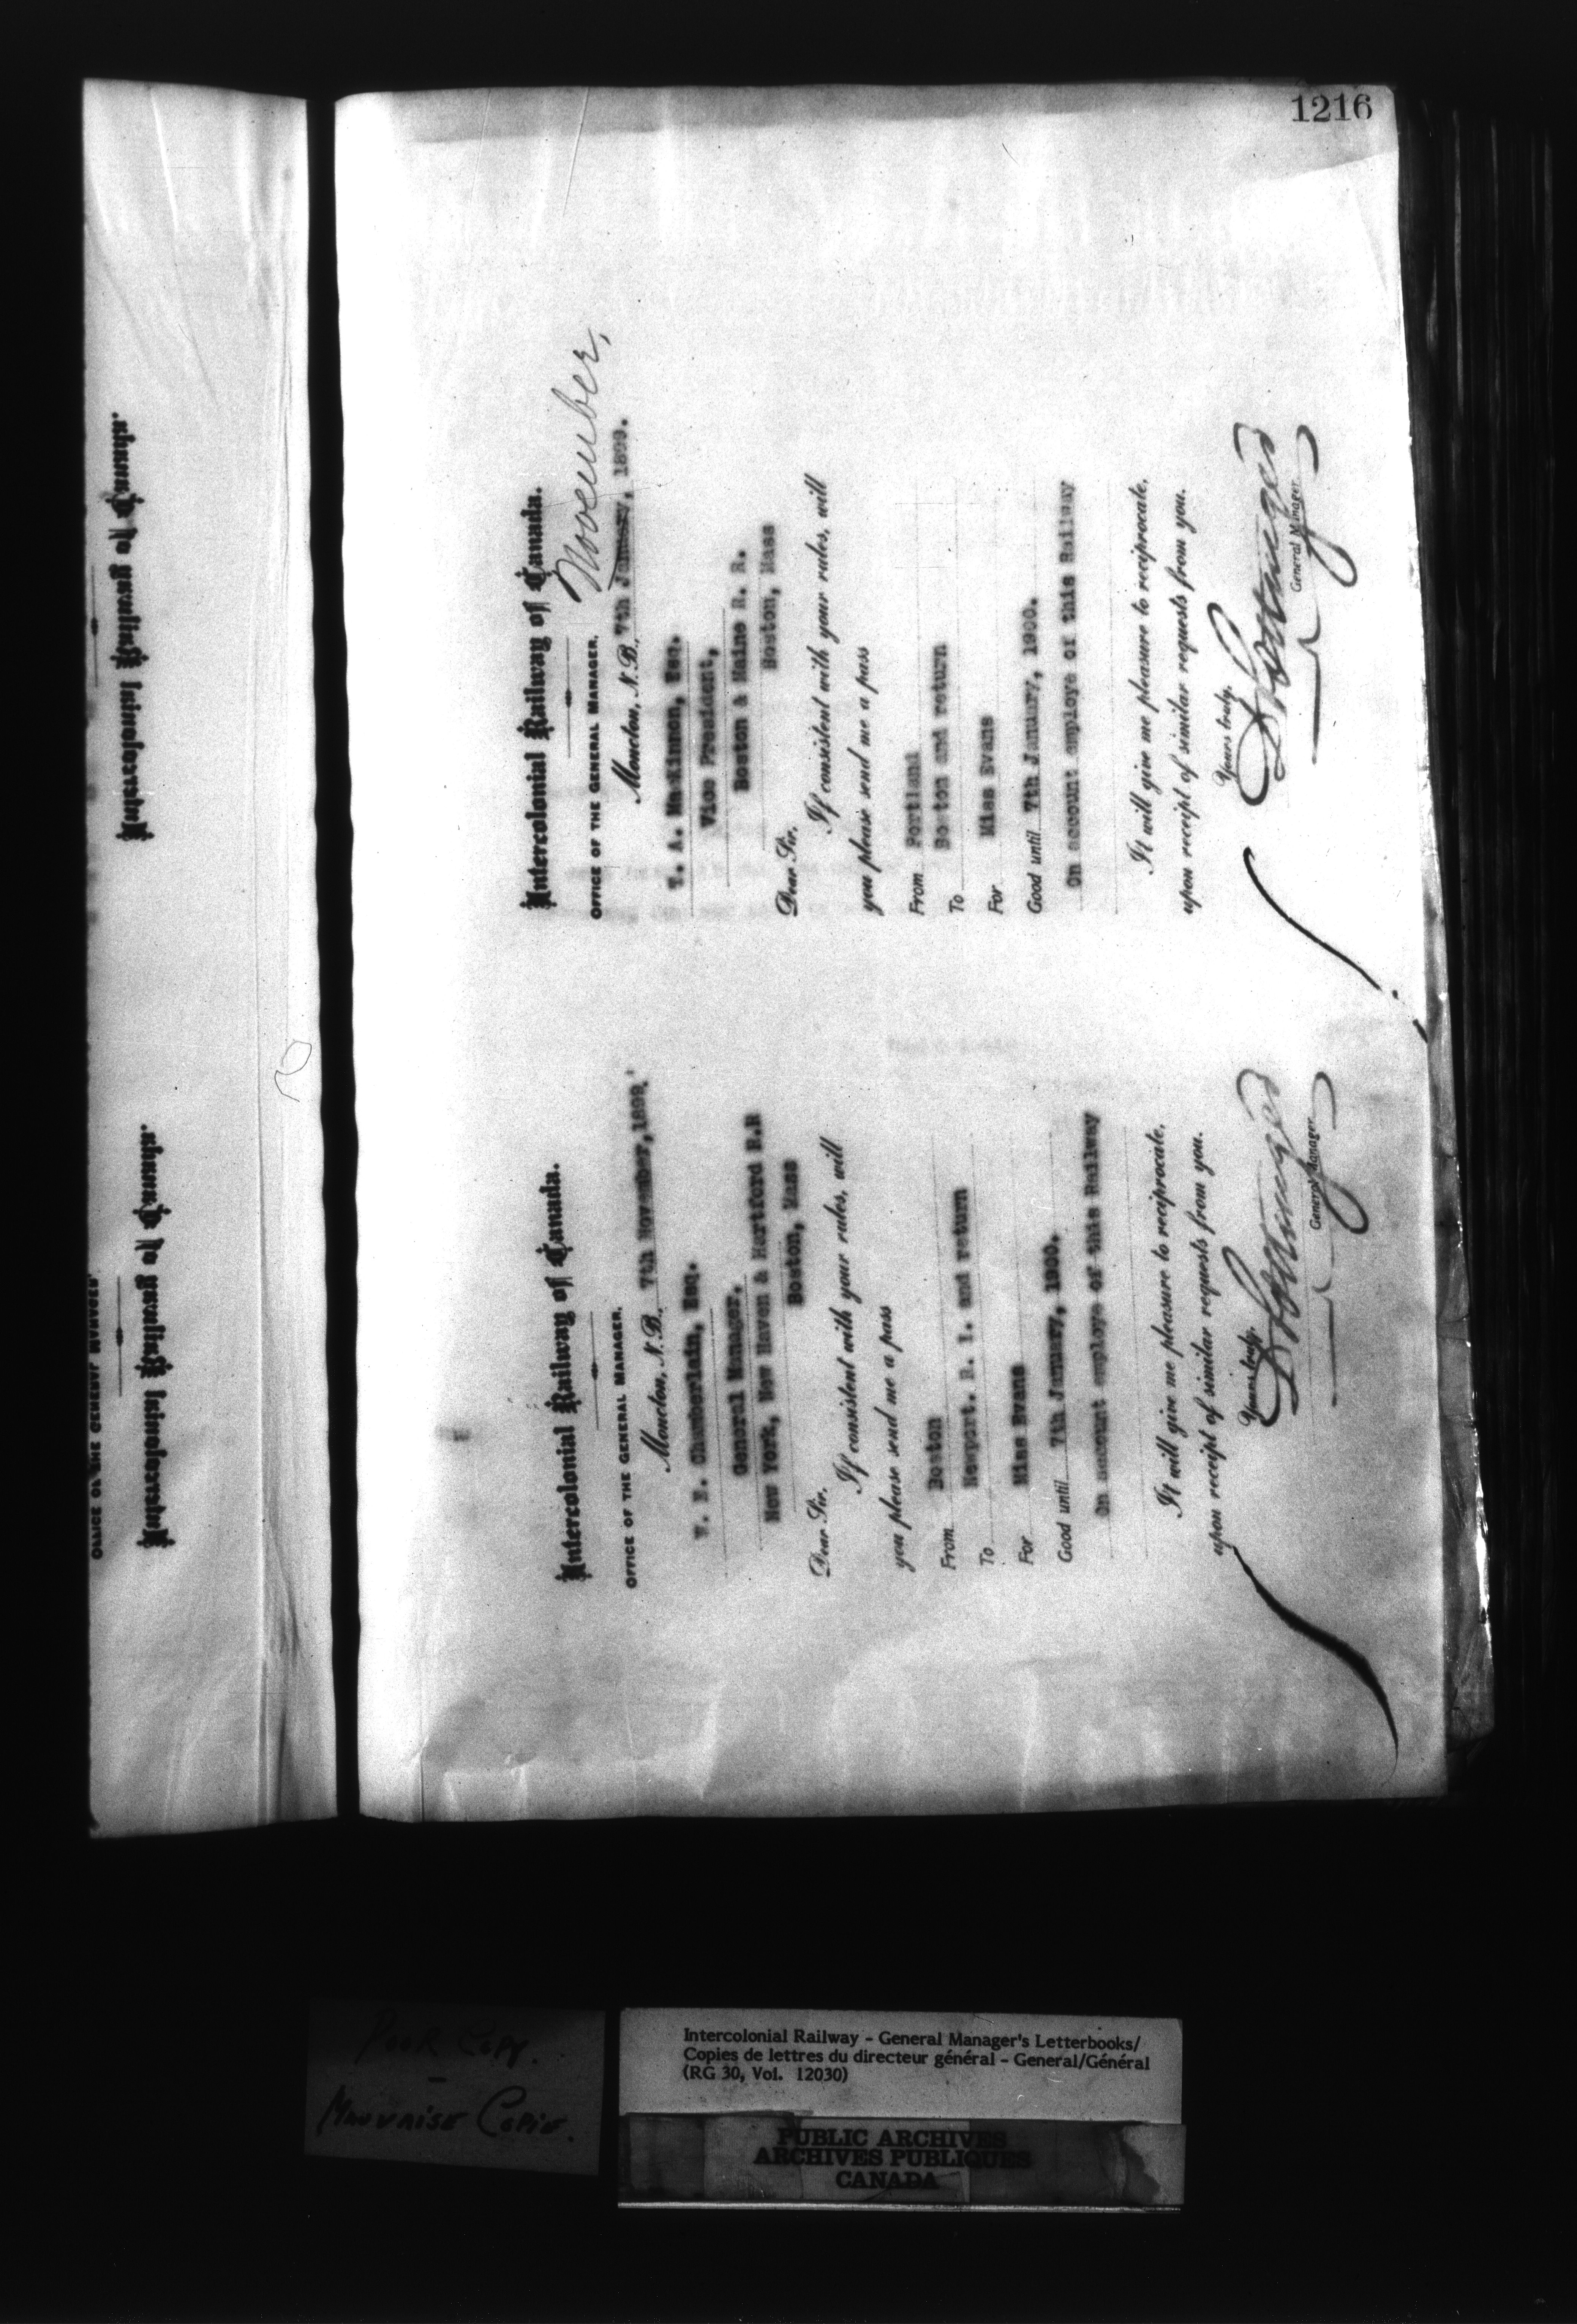 1216
Intercolonial Railway of Canada.
OFFICE OF THE GENERAL MANAGER.
Moncton, N.B. 7th November, 1899.
Chamberlain, Esq.
General Manager,
New York, New Haven & Hartford R.R
Boston, Mass
Dear Sir.
If consistent with your rules, will
you please send me a pass
From Boston
To Newport. R. I. and return
For Miss Evans
Good until 7th January, 1900.
On account employe of this Railway
It will give me pleasure to reciprocate,
upon receipt of similar requests from you.
Yours truly,
General Manager
Intercolonial Railway of Canada.
OFFICE OF THE GENERAL MANAGER.
November,
Moncton, N.B. 7th January, 1899.
T. A. MacKinnon, Esq.
Vice President,
Boston & Maine R. R.
Boston, Mass
Dear Sir.
If consistent with your rules, will
you please send me a pass
From Portland
To Boston and return
For Miss Evans
Good until 7th January, 1900.
On account employe of this Railway
It will give me pleasure to reciprocate,
upon receipt of similar requests from you.
Yours truly,
General Manager
Intercolonial Railway of Canada.
OFFICE OF THE GENERAL MANAGER.
Intercolonial Railway of Canada.
POOR COPY.
MAUVAISE COPIE.
Intercolonial Railway - General Manager's Letterbooks/
Copies de lettres du directeur général - General/Général
(RG 30, Vol. 12030)
PUBLIC ARCHIVES
ARCHIVES PUBLIQUES
CANADA